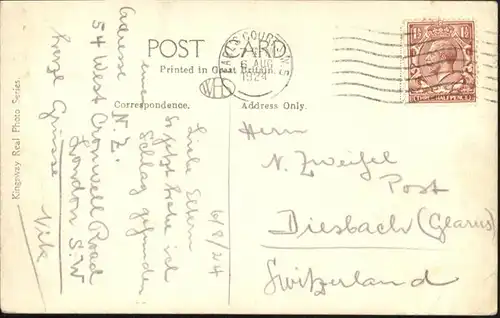 POST CARD
Printed in Great Britain.
Correspondence.
Address Only.
Kingsway Real Photo Series.
EARLS COURT S.W.5
6 AUG
1924
6/8/24
Liebe Eltern
jetzt habe ich
Schlag gefunden:
meine
Adresse
N. Z.
54 West Cromwell Road
London S.W
Herzl Grüsse
Nik
Herrn
N. Zweifel
Post
Diesbach (Glarus)
Switzerland